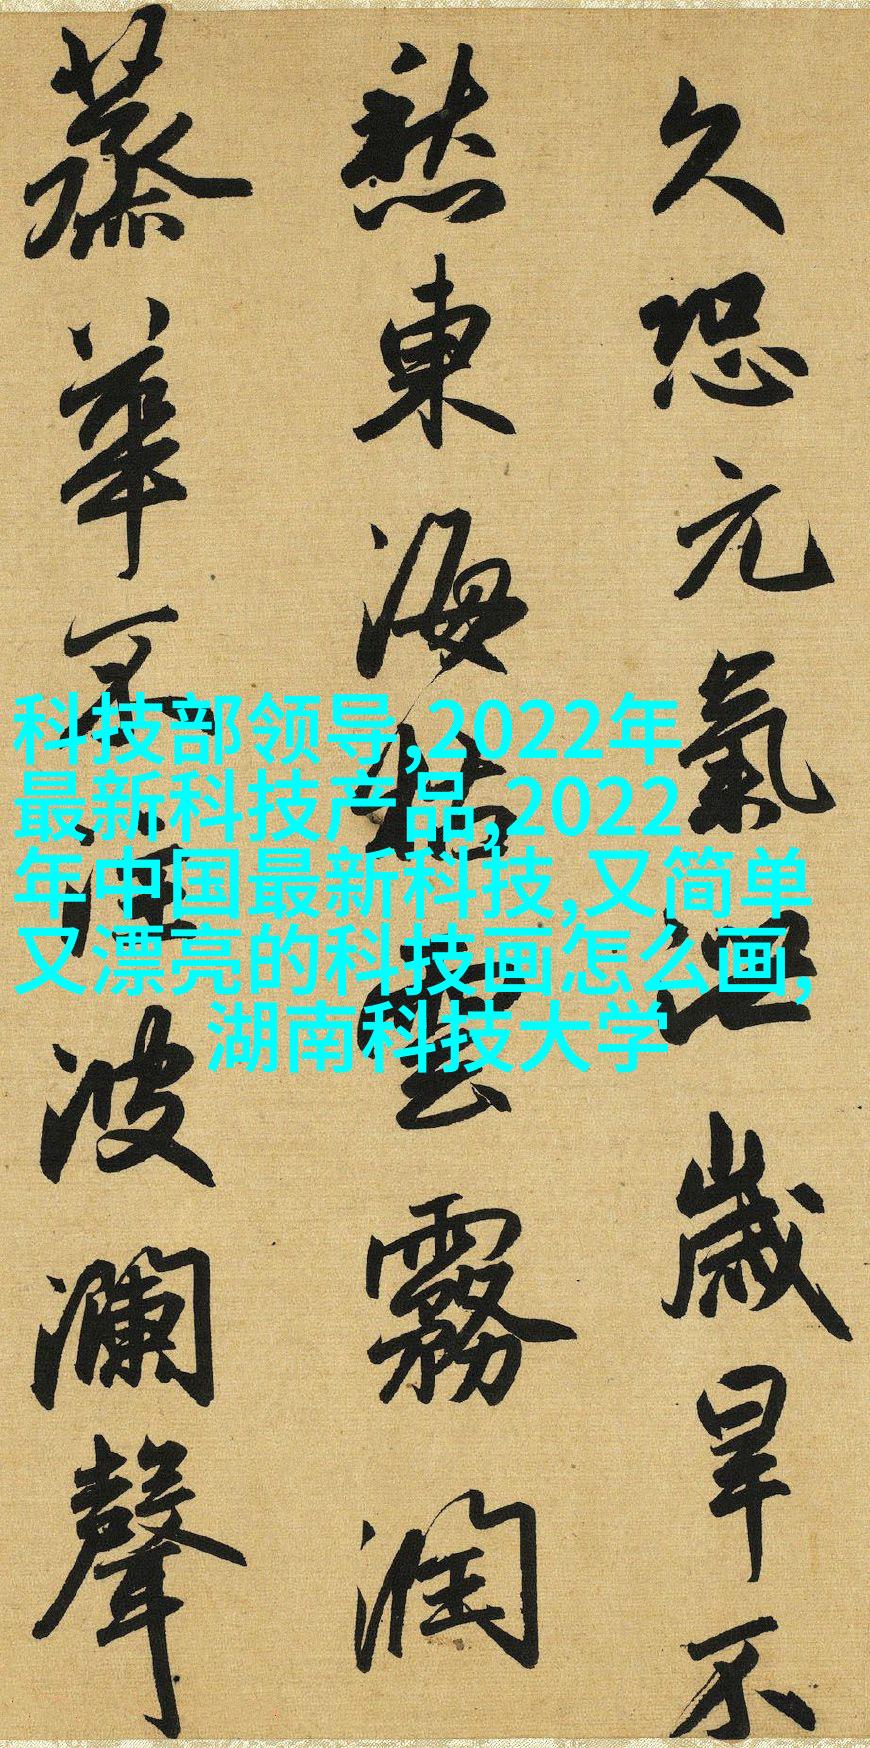 久恐元氣泄歲旱不
愁東海枯雲霧潤
蒸華不注波瀾聲
科技部领导,2022年
最新科技产品,2022
年中国最新科技,又简单
又漂亮的科技画怎么画,
湖南科技大学